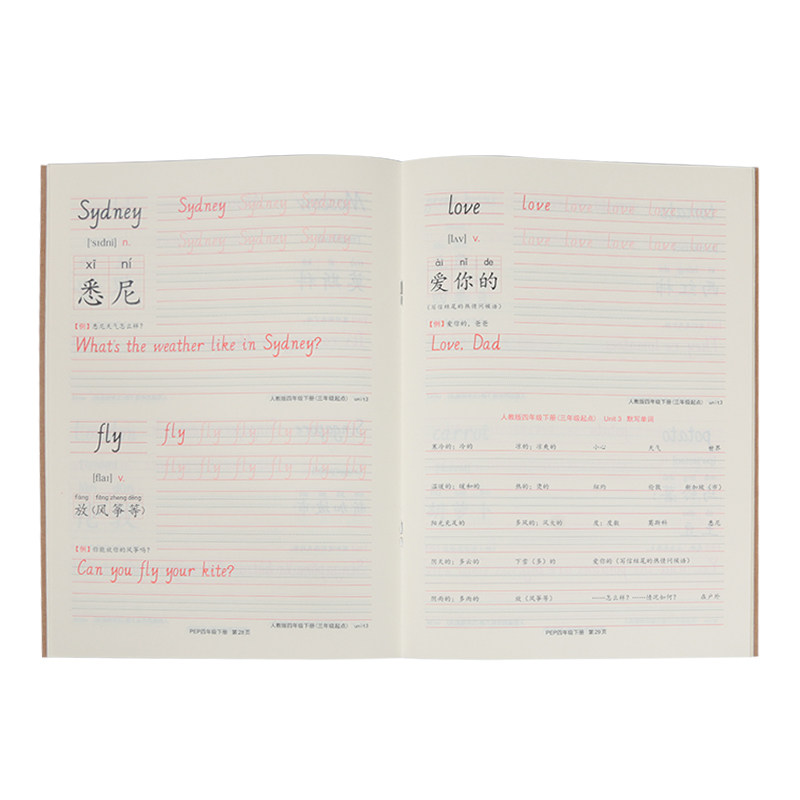 Sydney Sydney Sydney Sydney Sydney
Sydney Sydney Sydney Sydney
['sɪdni] n.
xī ní
悉尼
【例】悉尼天气怎么样?
What's the weather like in Sydney?
人教版四年级下册(三年级起点) unit3
fly fly fly fly fly fly fly
fly fly fly fly fly fly
[flaɪ] v.
fàng fēng zheng děng
放(风筝等)
【例】你能放你的风筝吗?
Can you fly your kite?
人教版四年级下册(三年级起点) unit3
PEP四年级下册 第28页
love love love love love love love
love love love love love love
[lʌv] v.
ài nǐ de
爱你的
(写信结尾的热情问候语)
【例】爱你的,爸爸
Love, Dad
人教版四年级下册(三年级起点) unit3
人教版四年级下册(三年级起点) Unit 3 默写单词
寒冷的;冷的 凉的;凉爽的 小心 天气 世界
温暖的;暖和的 热的;烫的 纽约 伦敦 新加坡(市)
阳光充足的 多风的;风大的 度;度数 莫斯科 悉尼
阴天的;多云的 下雪(多)的 爱你的(写信结尾的热情问候语)
阴雨的;多雨的 放(风筝等) ——怎么样?——情况如何? 在户外
PEP四年级下册 第29页